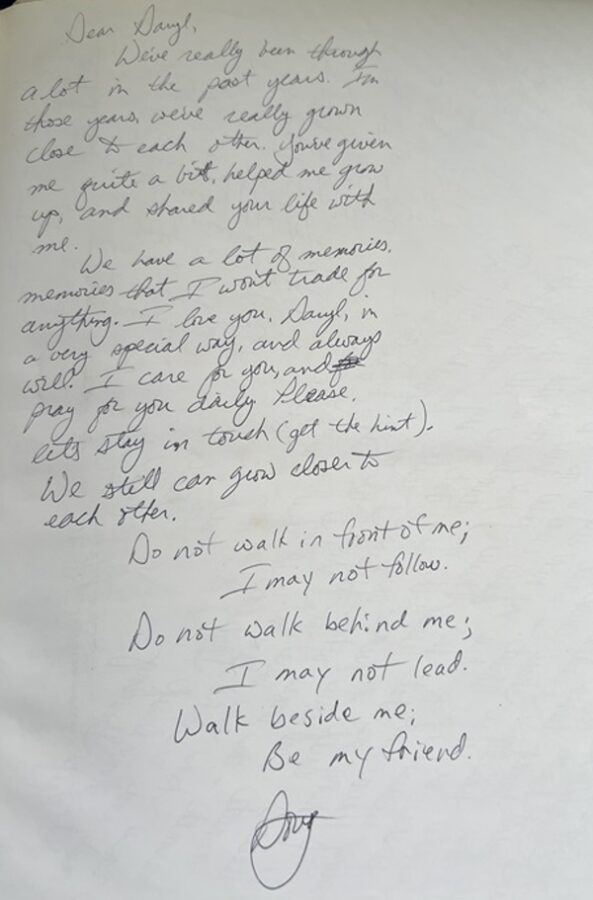 Dear Daryl,
We've really been through
a lot in the past years. In
those years, we've really grown
close to each other. You've given
me quite a bit, helped me grow
up, and shared your life with
me.
We have a lot of memories,
memories that I won't trade for
anything. I love you, Daryl, in
a very special way, and always
will. I care for you, and
pray for you daily. Please,
lets stay in touch (get the hint).
We still can grow closer to
each other.
Do not walk in front of me;
I may not follow.
Do not walk behind me;
I may not lead.
Walk beside me;
Be my friend.